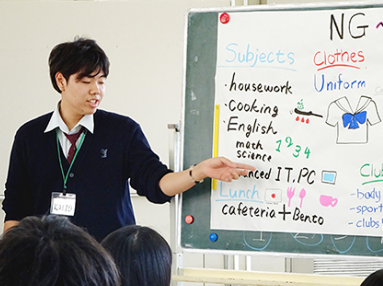 NG
Subjects
Clothes
Uniform
· housework
· Cooking
· English
math
science
1 2 3 4
IT, PC
Lunch
cafeteria + Bento
Clu
-body
-sport
-clubs